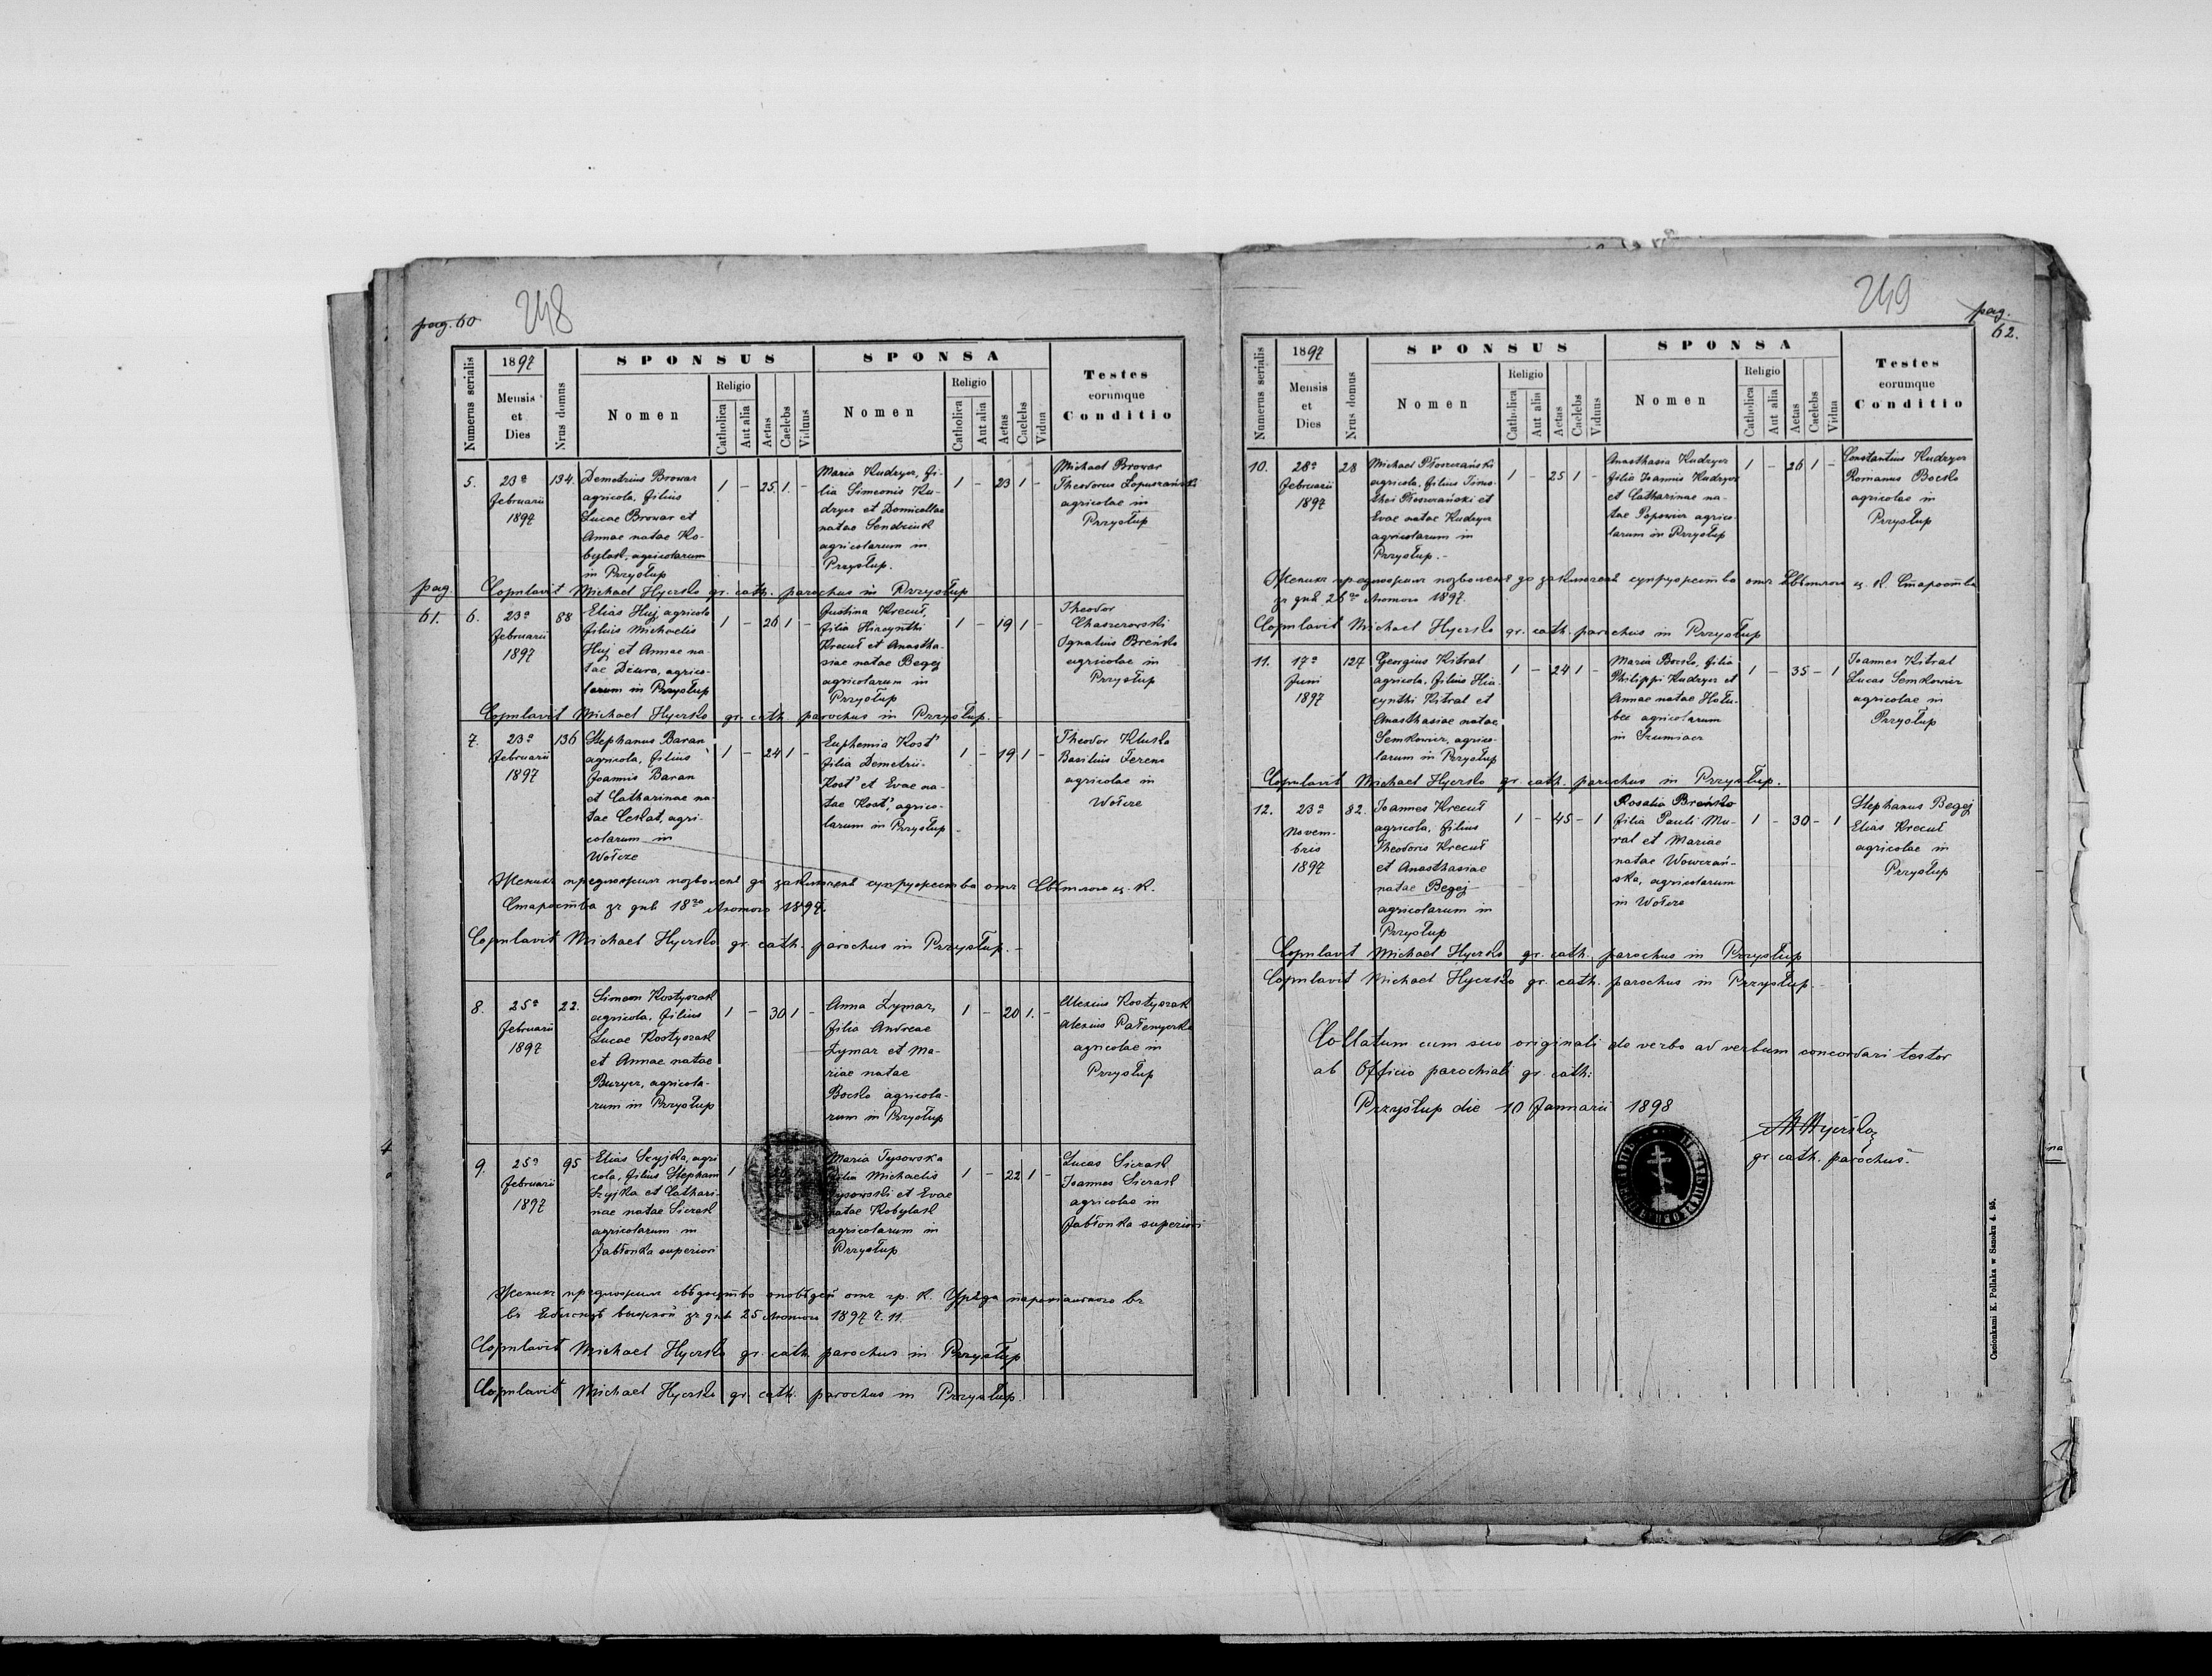 pag. 60
248
Numerus serialis
1897
Mensis
et
Dies
Nrus domus
SPONSUS
Nomen
Religio
Catholica
Aut alia
Aetas
Caelebs
Viduus
SPONSA
Nomen
Religio
Catholica
Aut alia
Aetas
Caelebs
Vidua
Testes
eorumque
Conditio
5.
23a
Februarii
1897
134.
Demetrius Browar
agricola, filius
Lucae Browar et
Annae natae Ko-
bylak, agricolarum
in Przysłup
1 - 25 1. -
Maria Kudryer, fi-
lia Simeonis Ku-
dryer et Domicellae
natae
agricolarum in
Przysłup.
1 - 23 1 -
Michael Browar
Theodorus Łopuszański
agricolae in
Przysłup
pag.
Copulavit Michael Hyćrsko gr. cath. parochus in Przysłup
61.
6.
23a
Februarii
1897
88
Elias Huj agricola
filius Michaelis
Huj et Annae na-
tae Dziura, agrico-
larum in Przysłup
1 - 26 1 -
Justina Krecuł,
filia Hiacynthi
Krecuł et Anastha-
siae natae Begej
agricolarum in
Przysłup
1 - 19 1 -
Theodor
Chaszczowski
Ignatius Breńsko
agricolae in
Przysłup
Copulavit Michael Hyćrsko gr. cath. parochus in Przysłup.
7.
23a
Februarii
1897
136
Stephanus Baran
agricola, filius
Joannis Baran
et Catharinae na-
tae Cekat, agri-
colarum in
Wołcze
1 - 24 1 -
Euphemia Kost'
filia Demetrii
Kost' et Evae na-
tae Kost', agrico-
larum in Przysłup
1 - 19 1 -
Theodor Kluska
Basilius Ferenc
agricolae in
Wołcze
Женихъ предложилъ позволенє до заключеня супружества отъ Свѣтлого ц. к.
Староства зъ дня 18го Лютого 1897.
Copulavit Michael Hyćrsko gr. cath. parochus in Przysłup.
8.
25a
Februarii
1897
22.
Simeon Kostyszak
agricola, filius
Lucae Kostyszak
et Annae natae
Buryer, agricola-
rum in Przysłup
1 - 30 1 -
Anna Zymar,
filia Andreae
Zymar et Ma-
riae natae
Bocko agricola-
rum in Przysłup
1 - 20 1. -
Alexius Kostyszak
Alexius
agricolae in
Przysłup
9.
25a
Februarii
1897
95
Elias Szyjka, agri
cola, filius Stephani
Szyjka et Cathari-
nae natae Siczak
agricolarum in
Jabłonka superiori
1
Maria Tysowska
filia Michaelis
Tysowski et Evae
natae Kobylak
agricolarum in
Przysłup
1 - 22 1 -
Lucas Siczak
Joannes Siczak
agricolae in
Jabłonka superiori
Женихъ предложилъ свѣдоцтво оповѣдей отъ гр. к. Уряда парохіяльного въ
въ Яблонцѣ выжной зъ дня 25 Лютого 1897 ч. 11.
Copulavit Michael Hyćrsko gr. cath. parochus in Przysłup
Copulavit Michael Hyćrsko gr. cath. parochus in Przysłup.
249
pag.
62.
Numerus serialis
1897
Mensis
et
Dies
Nrus domus
SPONSUS
Nomen
Religio
Catholica
Aut alia
Aetas
Caelebs
Viduus
SPONSA
Nomen
Religio
Catholica
Aut alia
Aetas
Caelebs
Vidua
Testes
eorumque
Conditio
10.
28a
Februarii
1897
28
Michael Płoszczański
agricola, filius Timo-
thei Płoszczański et
Evae natae Kudryer
agricolarum in
Przysłup.-
1 - 25 1 -
Anasthasia Kudryer
filia Joannis Kudryer
et Catharinae na-
tae Popowicz agrico-
larum in Przysłup
1 - 26 1 -
Constantius Kudryer
Romanus Bocko
agricolae in
Przysłup
Женихъ предложилъ позволенє до заключеня супружества отъ Свѣтлого ц. К. Староства
зъ дня 26го Лютого 1897.
Copulavit Michael Hyćrsko gr. cath. parochus in Przysłup
11.
17a
Juni
1897
127
Georgius Kitral
agricola, filius Hia-
cynthi Kitral et
Anasthasiae natae
Semkowicz, agrico-
larum in Przysłup
1 - 24 1 -
Maria Bocko, filia
Philippi Kudryer et
Annae natae Hołu-
bec agricolarum
in Szumiacz
1 - 35 - 1
Joannes Kitral
Lucas Semkowicz
agricolae in
Przysłup
Copulavit Michael Hyćrsko gr. cath. parochus in Przysłup.
12.
23a
Novem-
bris
1897
82.
Joannes Krecuł
agricola, filius
Theodoris Krecuł
et Anasthasiae
natae Begej
agricolarum in
Przysłup
1 - 45 - 1
Rosalia Breńsko
filia Pauli Mu-
ral et Mariae
natae Wowczań-
ska, agricolarum
in Wołcze
1 - 30 - 1
Stephanus Begej
Elias Krecuł
agricolae in
Przysłup
Copulavit Michael Hyćrsko gr. cath. parochus in Przysłup
Copulavit Michael Hyćrsko gr. cath. parochus in Przysłup.
Collatum cum suo originali de verbo ad verbum concordari testor
ab Officio parochiali gr. cath:
Przysłup die 10 Januarii 1898
gr. cath. parochus.
Czcionkami K. Pollaka w Sanoku 4. 95.